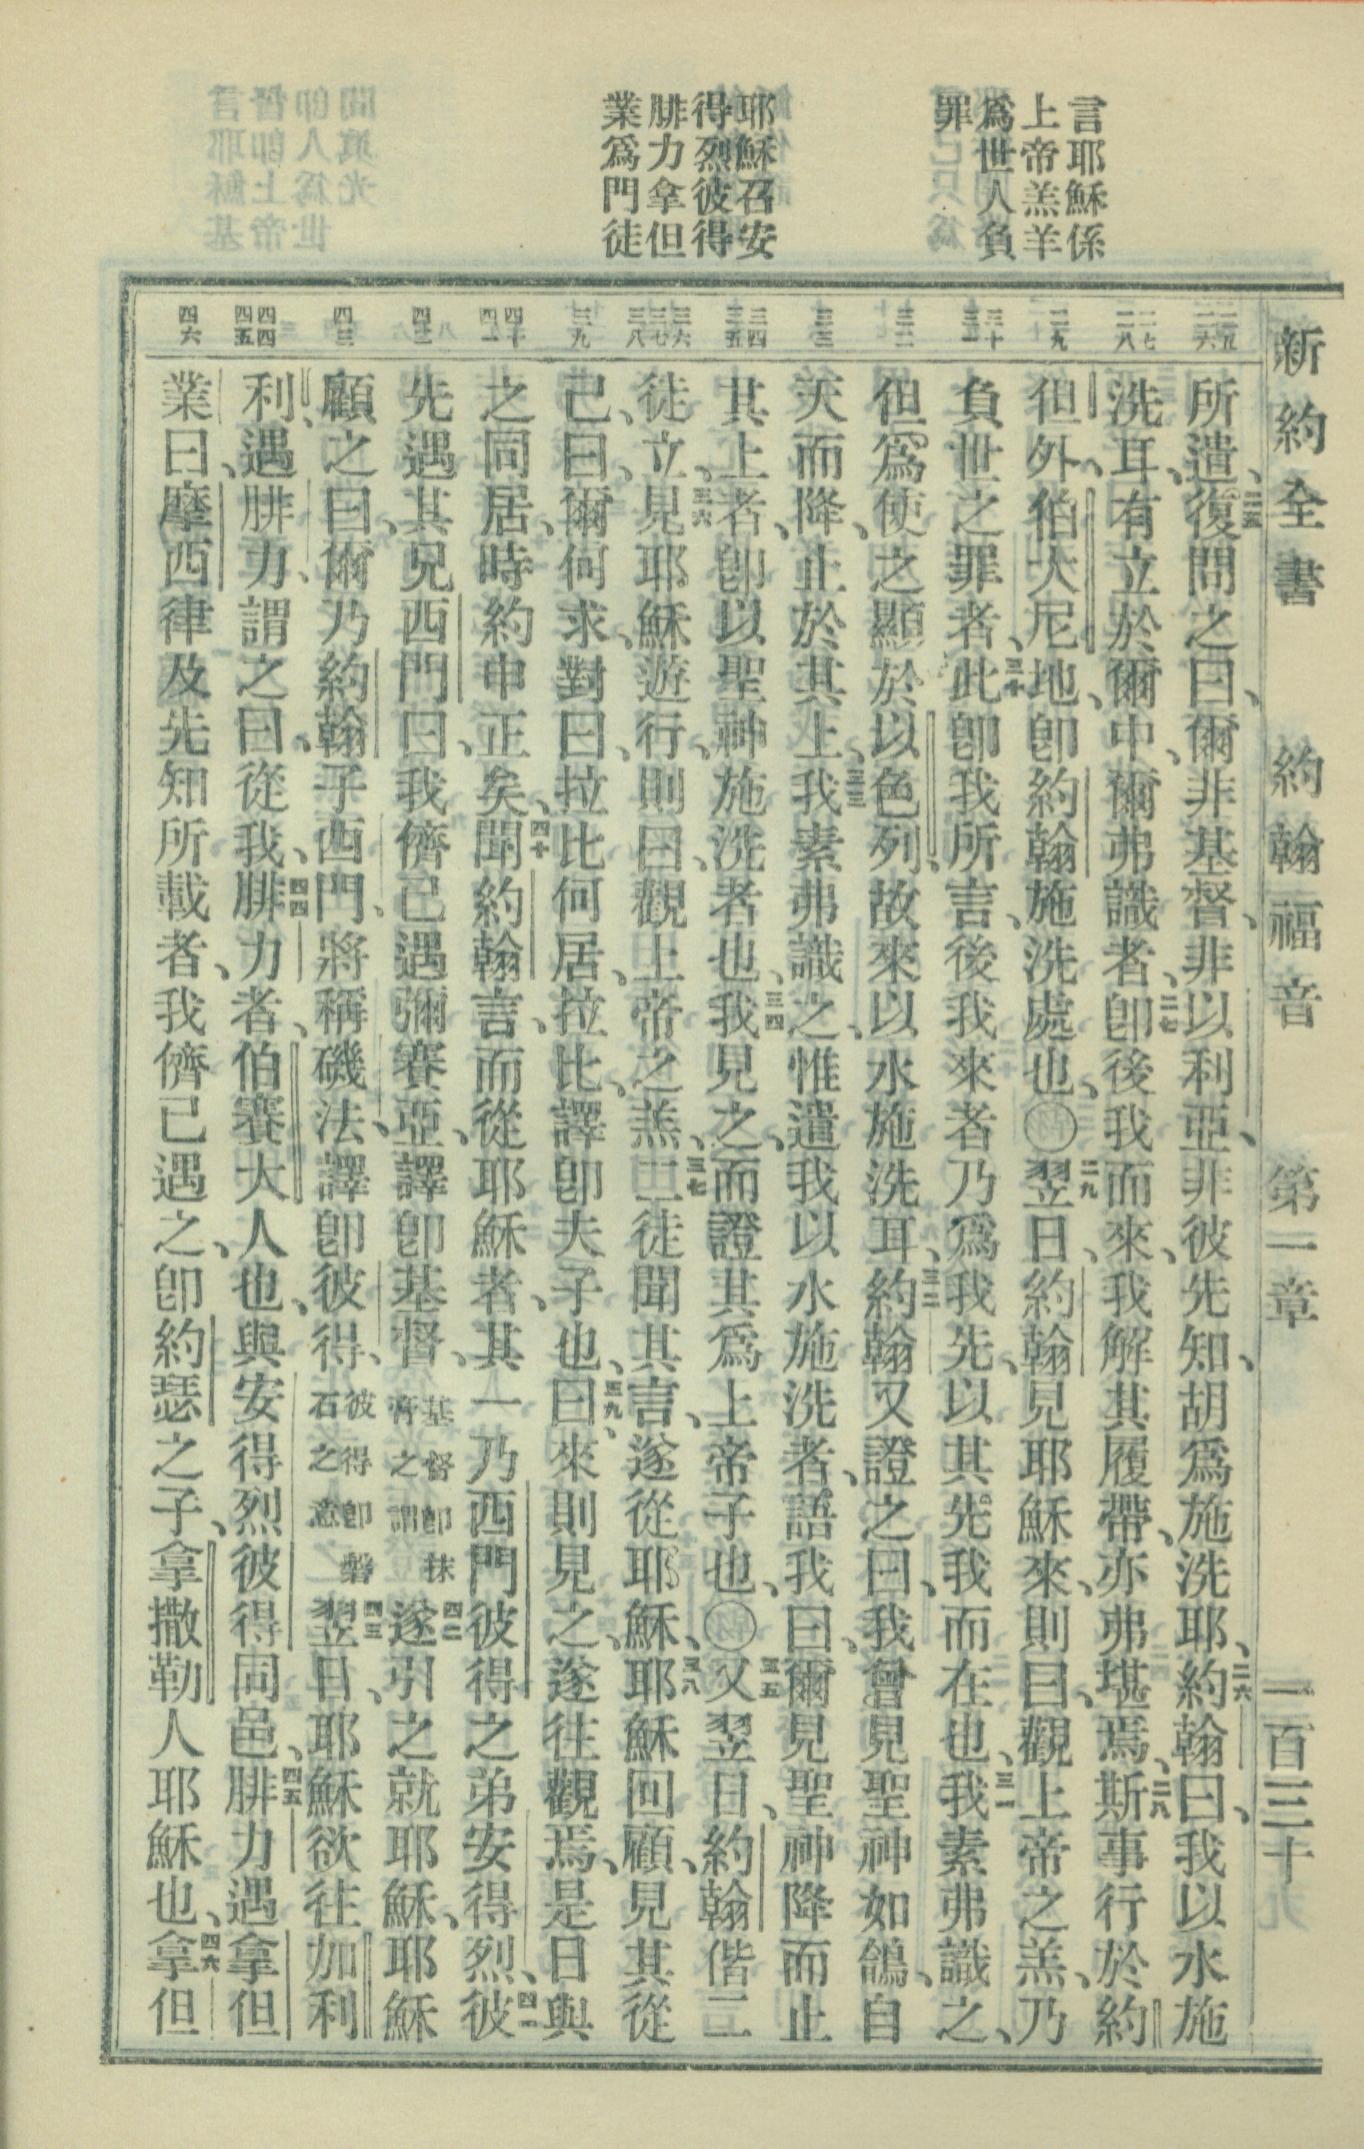 新約全書 約翰福音 第一章 一百三十
言耶穌係
上帝羔羊
爲世人負
罪
耶穌召安
得烈彼得
腓力拿但
業爲門徒
二五 二六
二七 二八
二九
三十 三一
三二
三三
三四 三五
三六 三七 三八
三九
四十 四一
四二
四三
四四 四五
四六
所遣、二五復問之曰、爾非基督、非以利亞、非彼先知、胡爲施洗耶、二六約翰曰、我以水施
洗耳、有立於爾中、爾弗識者、二七卽後我而來、我解其履帶、亦弗堪焉、二八斯事行於約
但外、伯大尼地、卽約翰施洗處也、〇二九翌日、約翰見耶穌來、則曰、觀上帝之羔、乃
負世之罪者、三十此卽我所言、後我來者乃爲我先、以其先我而在也、三一我素弗識之、
但爲使之顯於以色列、故來以水施洗耳、三二約翰又證之曰、我曾見聖神如鴿、自
天而降、止於其上、三三我素弗識之、惟遣我以水施洗者、語我曰、爾見聖神降而止
其上者、卽以聖神施洗者也、三四我見之、而證其爲上帝子也、〇三五又翌日、約翰偕二
徒立、三六見耶穌遊行、則曰、觀上帝之羔、三七二徒聞其言、遂從耶穌、三八耶穌回顧、見其從
己曰、爾何求、對曰、拉比何居、拉比、譯卽夫子也、三九曰、來則見之、遂往觀焉、是日與
之同居、時約申正矣、四十聞約翰言、而從耶穌者、其一乃西門彼得之弟安得烈、四一彼
先遇其兄西門曰、我儕已遇彌賽亞、譯卽基督、基督卽抹膏之謂四二遂引之就耶穌、耶穌
顧之曰、爾乃約翰子西門、將稱磯法、譯卽彼得、彼得卽磐石之意四三翌日、耶穌欲往加利
利、遇腓力、謂之曰、從我、四四腓力者、伯賽大人也、與安得烈彼得同邑、四五腓力遇拿但
業曰、摩西律及先知所載者、我儕已遇之、卽約瑟之子、拿撒勒人耶穌也、四六拿但